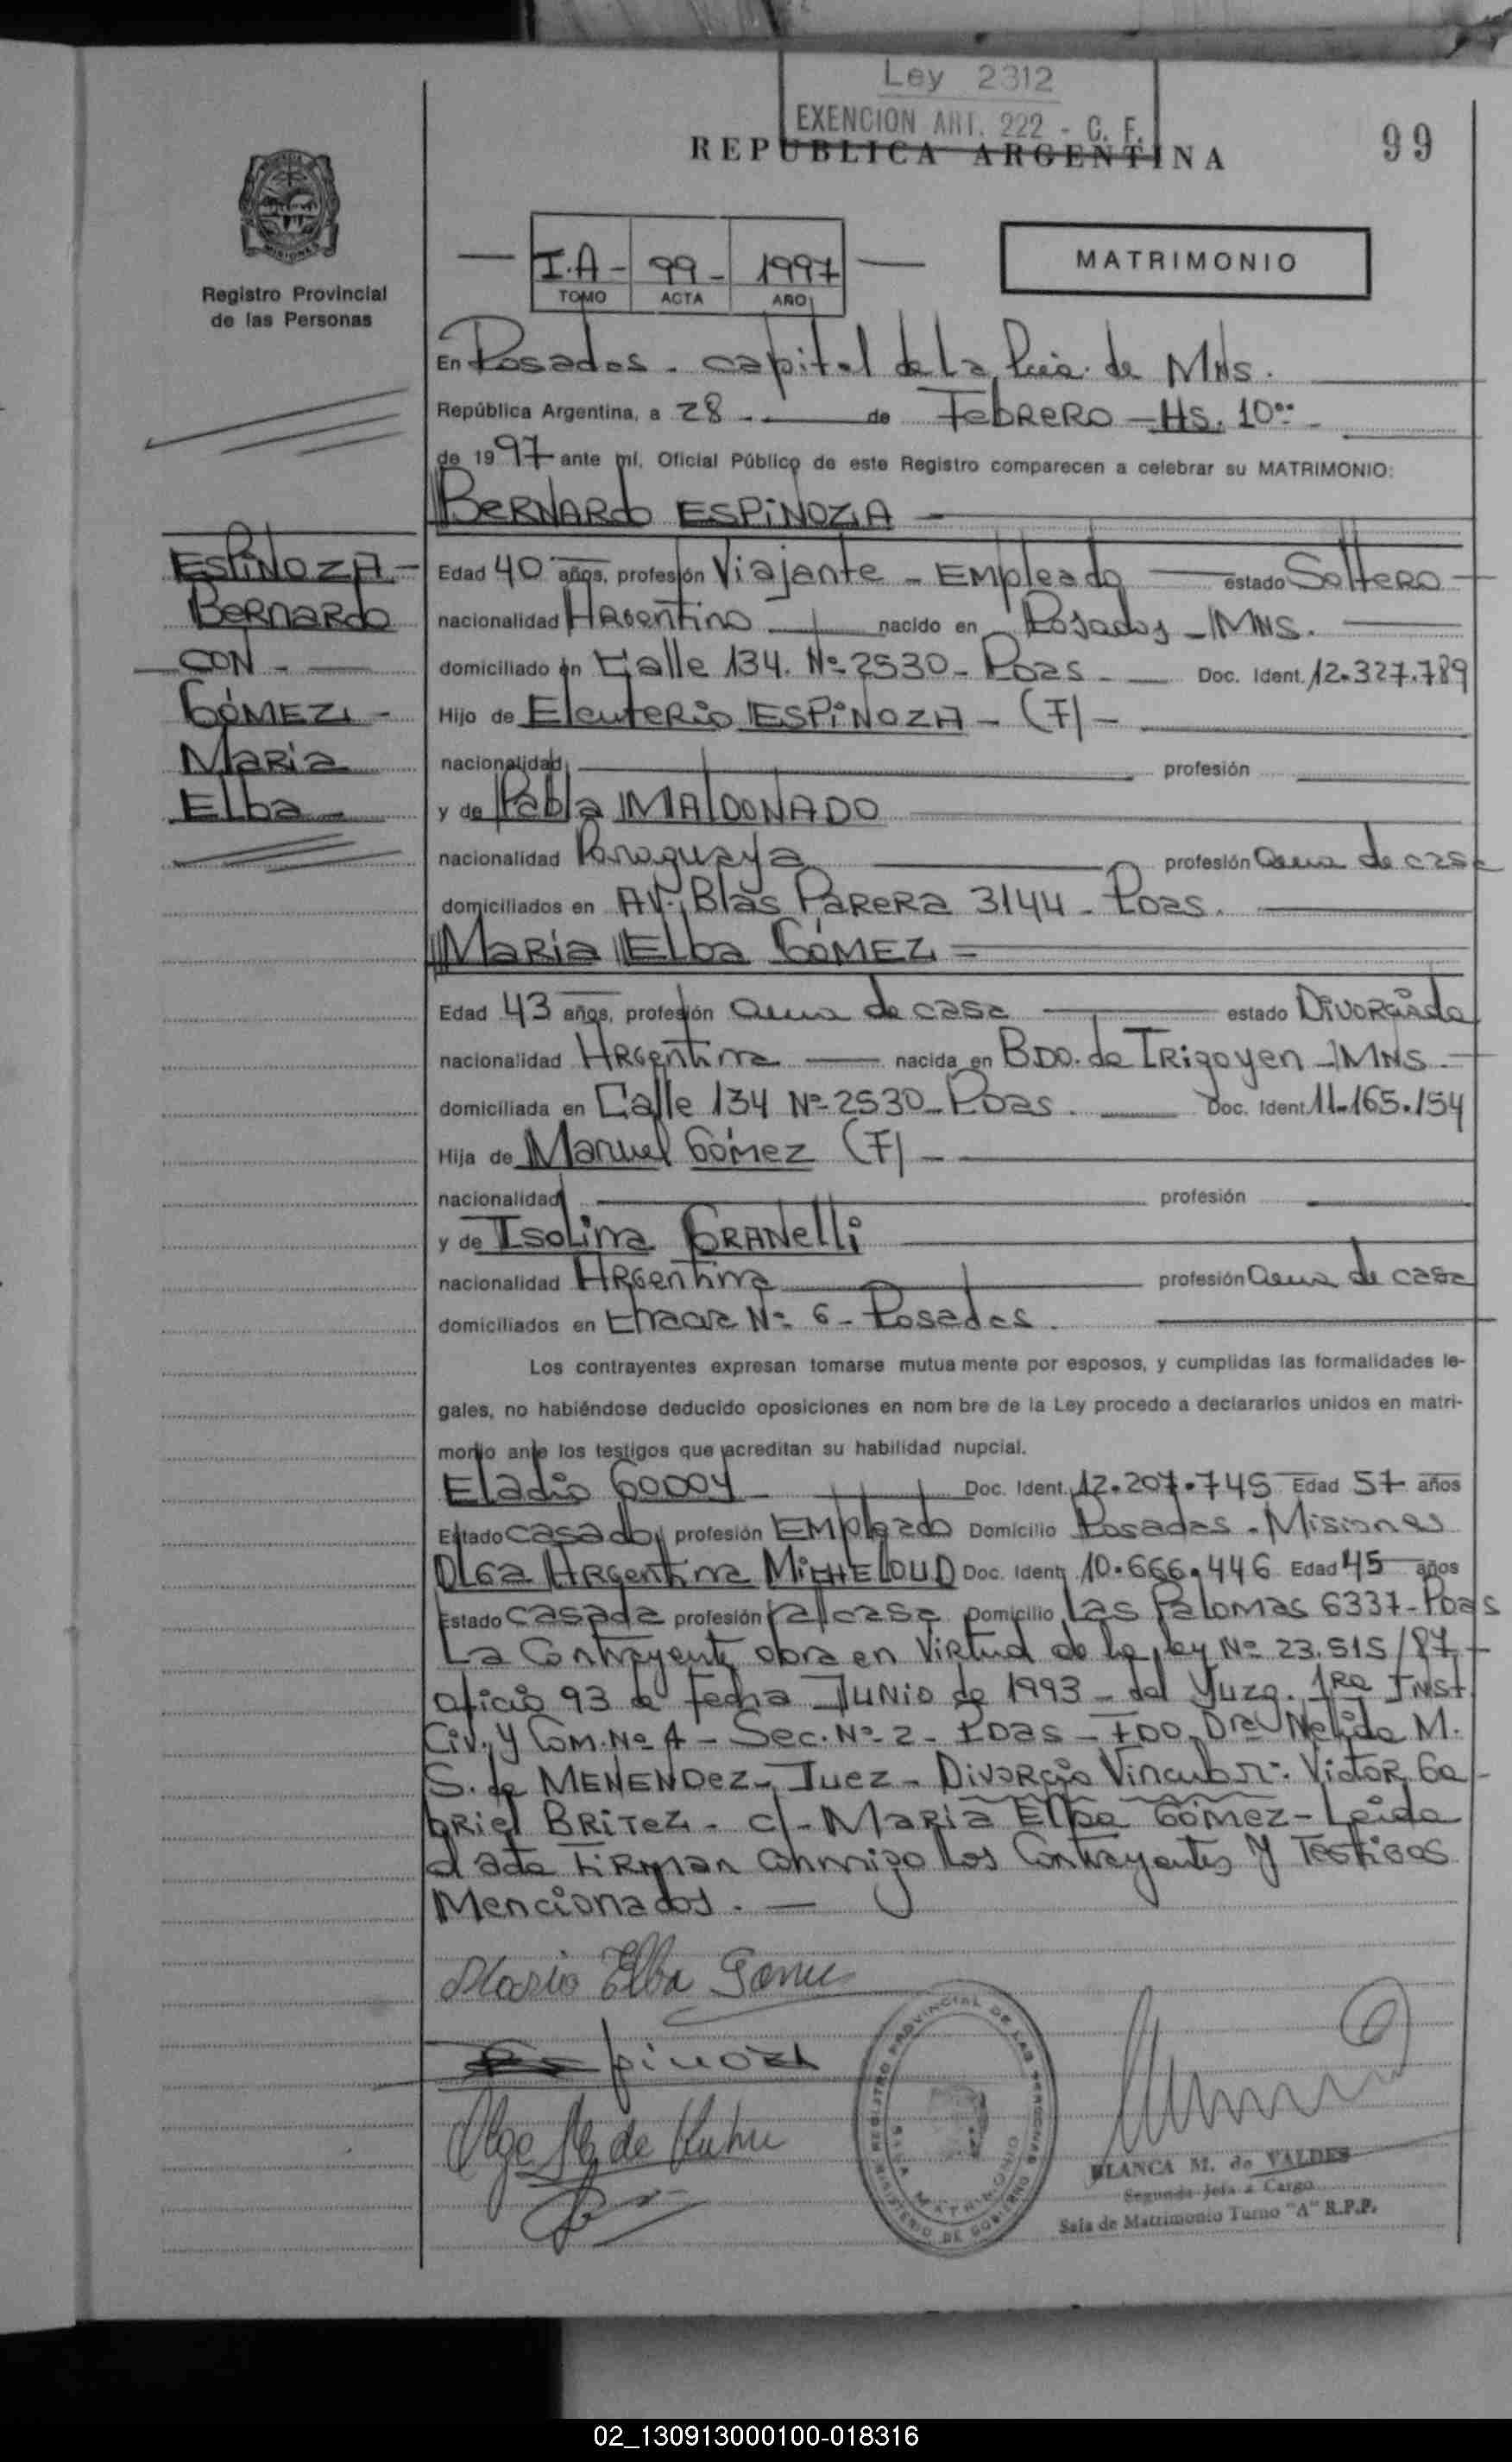 Ley 2312
EXENCION ART. 222 - C. F.
REPUBLICA ARGENTINA
99
MISIONES
Registro Provincial
de las Personas
I.A - 99 - 1997
TOMO ACTA AÑO
MATRIMONIO
En Posadas - capital de la Pcia. de MNS.
República Argentina, a 28 - de Febrero - Hs. 10:00 -
de 1997 ante mí, Oficial Público de este Registro comparecen a celebrar su MATRIMONIO:
BERNARDO ESPINOZA
ESPINOZA -
BERNARDO
CON -
GÓMEZ -
MARIA
Elba -
Edad 40 años, profesión Viajante - Empleado estado Soltero
nacionalidad Argentino nacido en Posadas - MNS.
domiciliado en Calle 134. Nº 2530 - Pdas - Doc. Ident. 12.327.789
Hijo de Eleuterio ESPINOZA - (F) -
nacionalidad profesión
y de Pabla MALDONADO
nacionalidad Paraguaya profesión ama de casa
domiciliados en AV. Blas Parera 3144 - Pdas.
Maria Elba GÓMEZ =
Edad 43 años, profesión ama de casa estado Divorciada
nacionalidad Argentina nacida en BDO. de Irigoyen - MNS -
domiciliada en Calle 134 Nº 2530 - Pdas. Doc. Ident 11.165.154
Hija de Manuel Gómez (F) -
nacionalidad profesión
y de Isolina GRANelli
nacionalidad Argentina profesión ama de casa
domiciliados en Nº 6 - Posadas.
Los contrayentes expresan tomarse mutua mente por esposos, y cumplidas las formalidades le-
gales, no habiéndose deducido oposiciones en nom bre de la Ley procedo a declararlos unidos en matri-
monio ante los testigos que acreditan su habilidad nupcial.
Eladio GODOY Doc. Ident. 12.207.745 Edad 57 años
Estado casado profesión Empleado Domicilio Posadas - Misiones
OLGA ARGentina MICHELOUD Doc. Ident. 10.666.446 Edad 45 años
Estado casada profesión Domicilio Las Palomas 6337 - Pdas
La Contrayente obra en Virtud de la ley Nº 23.515/87 -
oficio 93 de fecha JUNIO de 1993 - del Juzg. 1ra Inst.
Civ. y Com. No 4 - Sec. Nº 2 - Pdas - FDO. Dra Nelida M.
S. de MENENDEZ - Juez - Divorcio Vincular: Victor Ga-
briel BRITEZ - c/ - Maria Elba Gómez - Leída
el acta firman conmigo los Contrayentes y Testigos
Mencionados. -
Maria Elba Gomez
Espinoza
Olga M. de Kuhn
REGISTRO PROVINCIAL DE LAS PERSONAS
MINISTERIO DE GOBIERNO
SALA MATRIMONIO
BLANCA M. de VALDES
Segunda Jefa a Cargo
Sala de Matrimonio Turno "A" R.P.P.
02_130913000100-018316